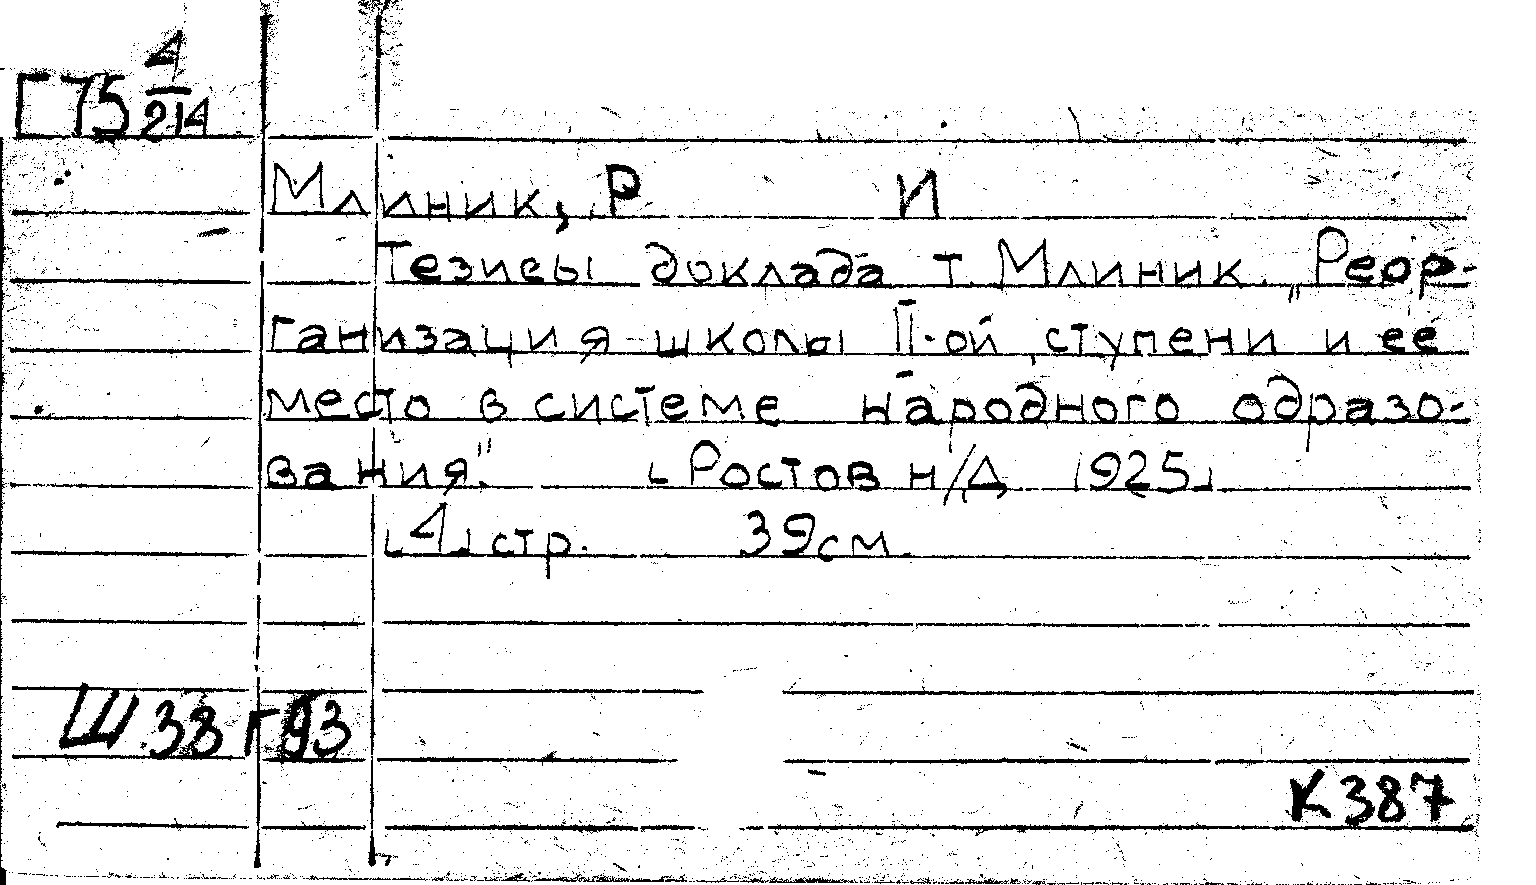 Г75 4/214
Млиник, Р И
Тезисы доклада т. Млиник. „Реор-
ганизация школы II-ой ступени и ее
место в системе народного образо-
вания". [Ростов н/Д 1925]
[4] стр. 39см.
Ш38г93
К387